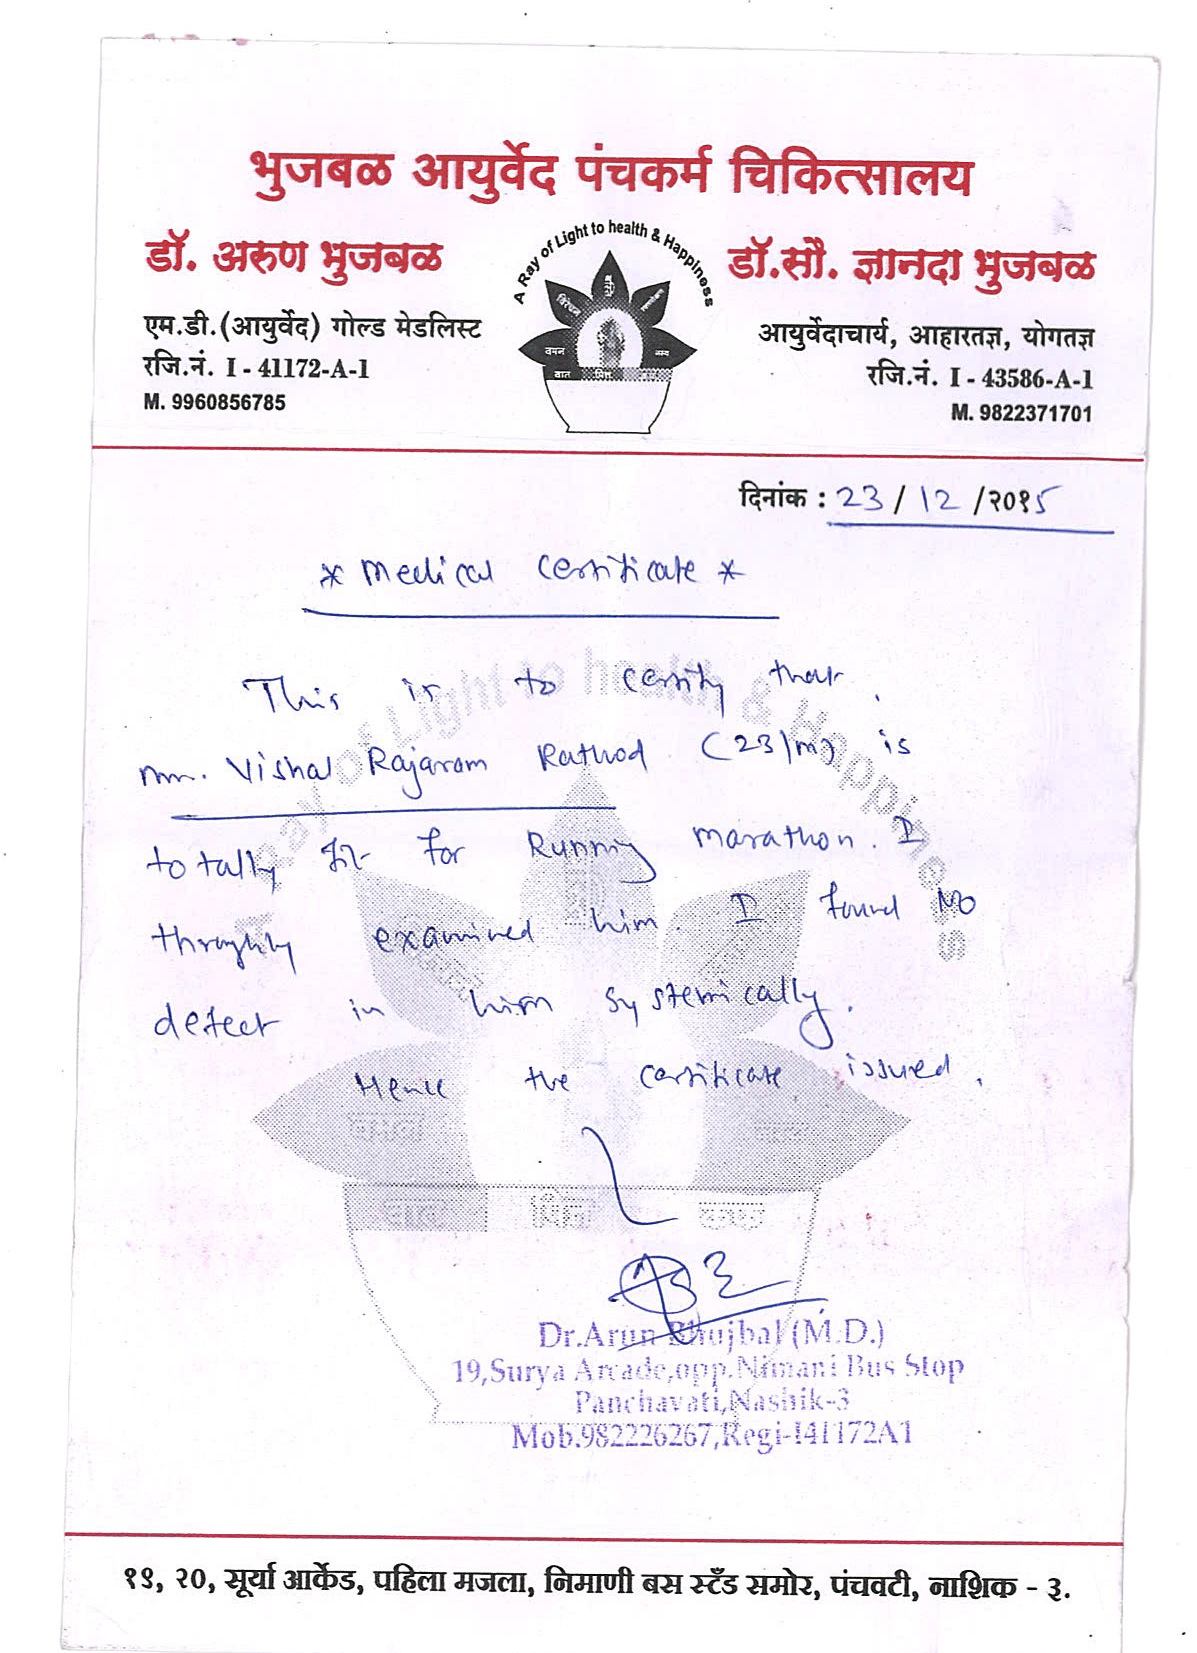 भुजबळ आयुर्वेद पंचकर्म चिकित्सालय
डॉ. अरुण भुजबळ
एम.डी.(आयुर्वेद) गोल्ड मेडलिस्ट
रजि.नं. I - 41172-A-1
M. 9960856785
A Ray of Light to health & Happiness
वमन
वात पित्त
डॉ.सौ. ज्ञानदा भुजबळ
आयुर्वेदाचार्य, आहारतज्ञ, योगतज्ञ
रजि.नं. I - 43586-A-1
M. 9822371701
दिनांक : 23 / 12 /२०१5
* Medical Certificate *
This is to certify that
Mr. Vishal Rajaram Rathod (23/M) is
totally fit for Running marathon. I
throughly examined him. I found No
defect in him systemically.
Hence the certificate issued.
Dr.Arun Bhujbal (M.D.)
19,Surya Arcade,opp.Nimani Bus Stop
Panchavati,Nashik-3
Mob.982226267,Regi-I41172A1
१९, २०, सूर्या आर्केड, पहिला मजला, निमाणी बस स्टँड समोर, पंचवटी, नाशिक - ३.